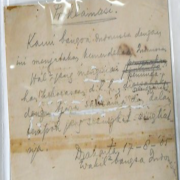 Proklamasi
Kami bangsa Indonesia dengan
ini menjatakan kemerdekaan Indonesia.
Hal2 jang mengenai
d.l.l., di
dengan tjara
dan dalam
tempo jang se-singkat-singkatnja
Djakarta, 17-8-'05
Wakil2 bangsa Indonesia